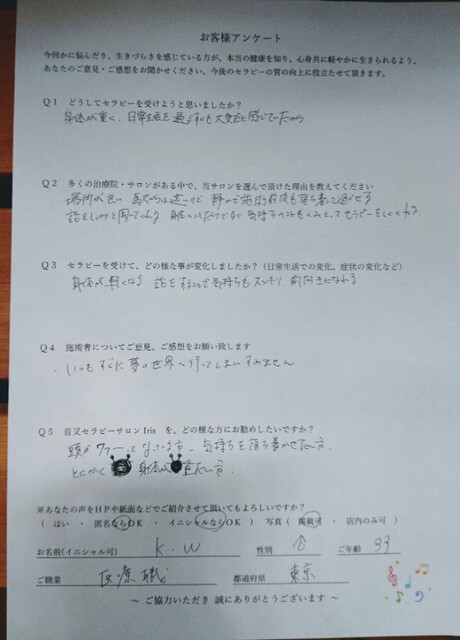 お客様アンケート
今何かに悩んだり、生きづらさを感じている方が、本当の健康を知り、心身共に軽やかに生きられるよう、
あなたのご意見・ご感想をお聞かせください。今後のセラピーの質の向上に役立たせて頂きます。
Q1 どうしてセラピーを受けようと思いましたか？
身体が重く、日常生活を過ごすにも大変だと感じていたから
Q2 多くの治療院・サロンがある中で、当サロンを選んで頂けた理由を教えてください
・場所が良い 駅から近いので 静かで施術前後も落ち着いて過ごせる
話をしっかりと聞いてくれる 身体のことだけでなく気持ちの
Q3 セラピーを受けて、どの様な事が変化しましたか？（日常生活での変化、症状の変化など）
身体が軽くなる 話をすることで気持ちもスッキリ 前向きになれる
Q4 施術者についてご意見、ご感想をお願い致します
・いつもすぐに夢の世界へ行ってしまいすみません
Q5 音叉セラピーサロン Iris を、どの様な方にお勧めしたいですか？
頭がワァーーってなっている方、気持ちを落ち着かせたい方
とにかく 身体が 重たい方、
※あなたの声をHPや紙面などでご紹介させて頂いてもよろしいですか？
（ はい ・ 匿名ならOK ・ イニシャルならOK ） 写真（ 掲載可 ・ 店内のみ可 ）
お名前(イニシャル可) K・W 性別 ご年齢 33
ご職業 医療職 都道府県 東京
～ ご協力いただき 誠にありがとうございます ～